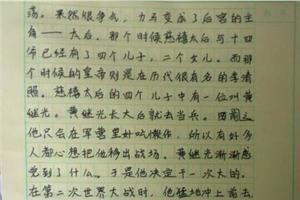 荡。果然很争气，力马变成了后宫的主
角——太后。那个时候慈禧太后与十四
爷已经有了四个儿子，二个女儿。而那
个时候的皇帝则是在历代很有名的李清
照。慈禧太后的四个儿子中有一位叫黄
继光。黄继光长大后就去当兵。因
他只会在军营里好吃懒作，所以有好多
人都心想把他移出战场。黄继光渐渐感
觉到了什么。于是他决定干一次大的。
在第二次世界大战时，他猛地冲上前去